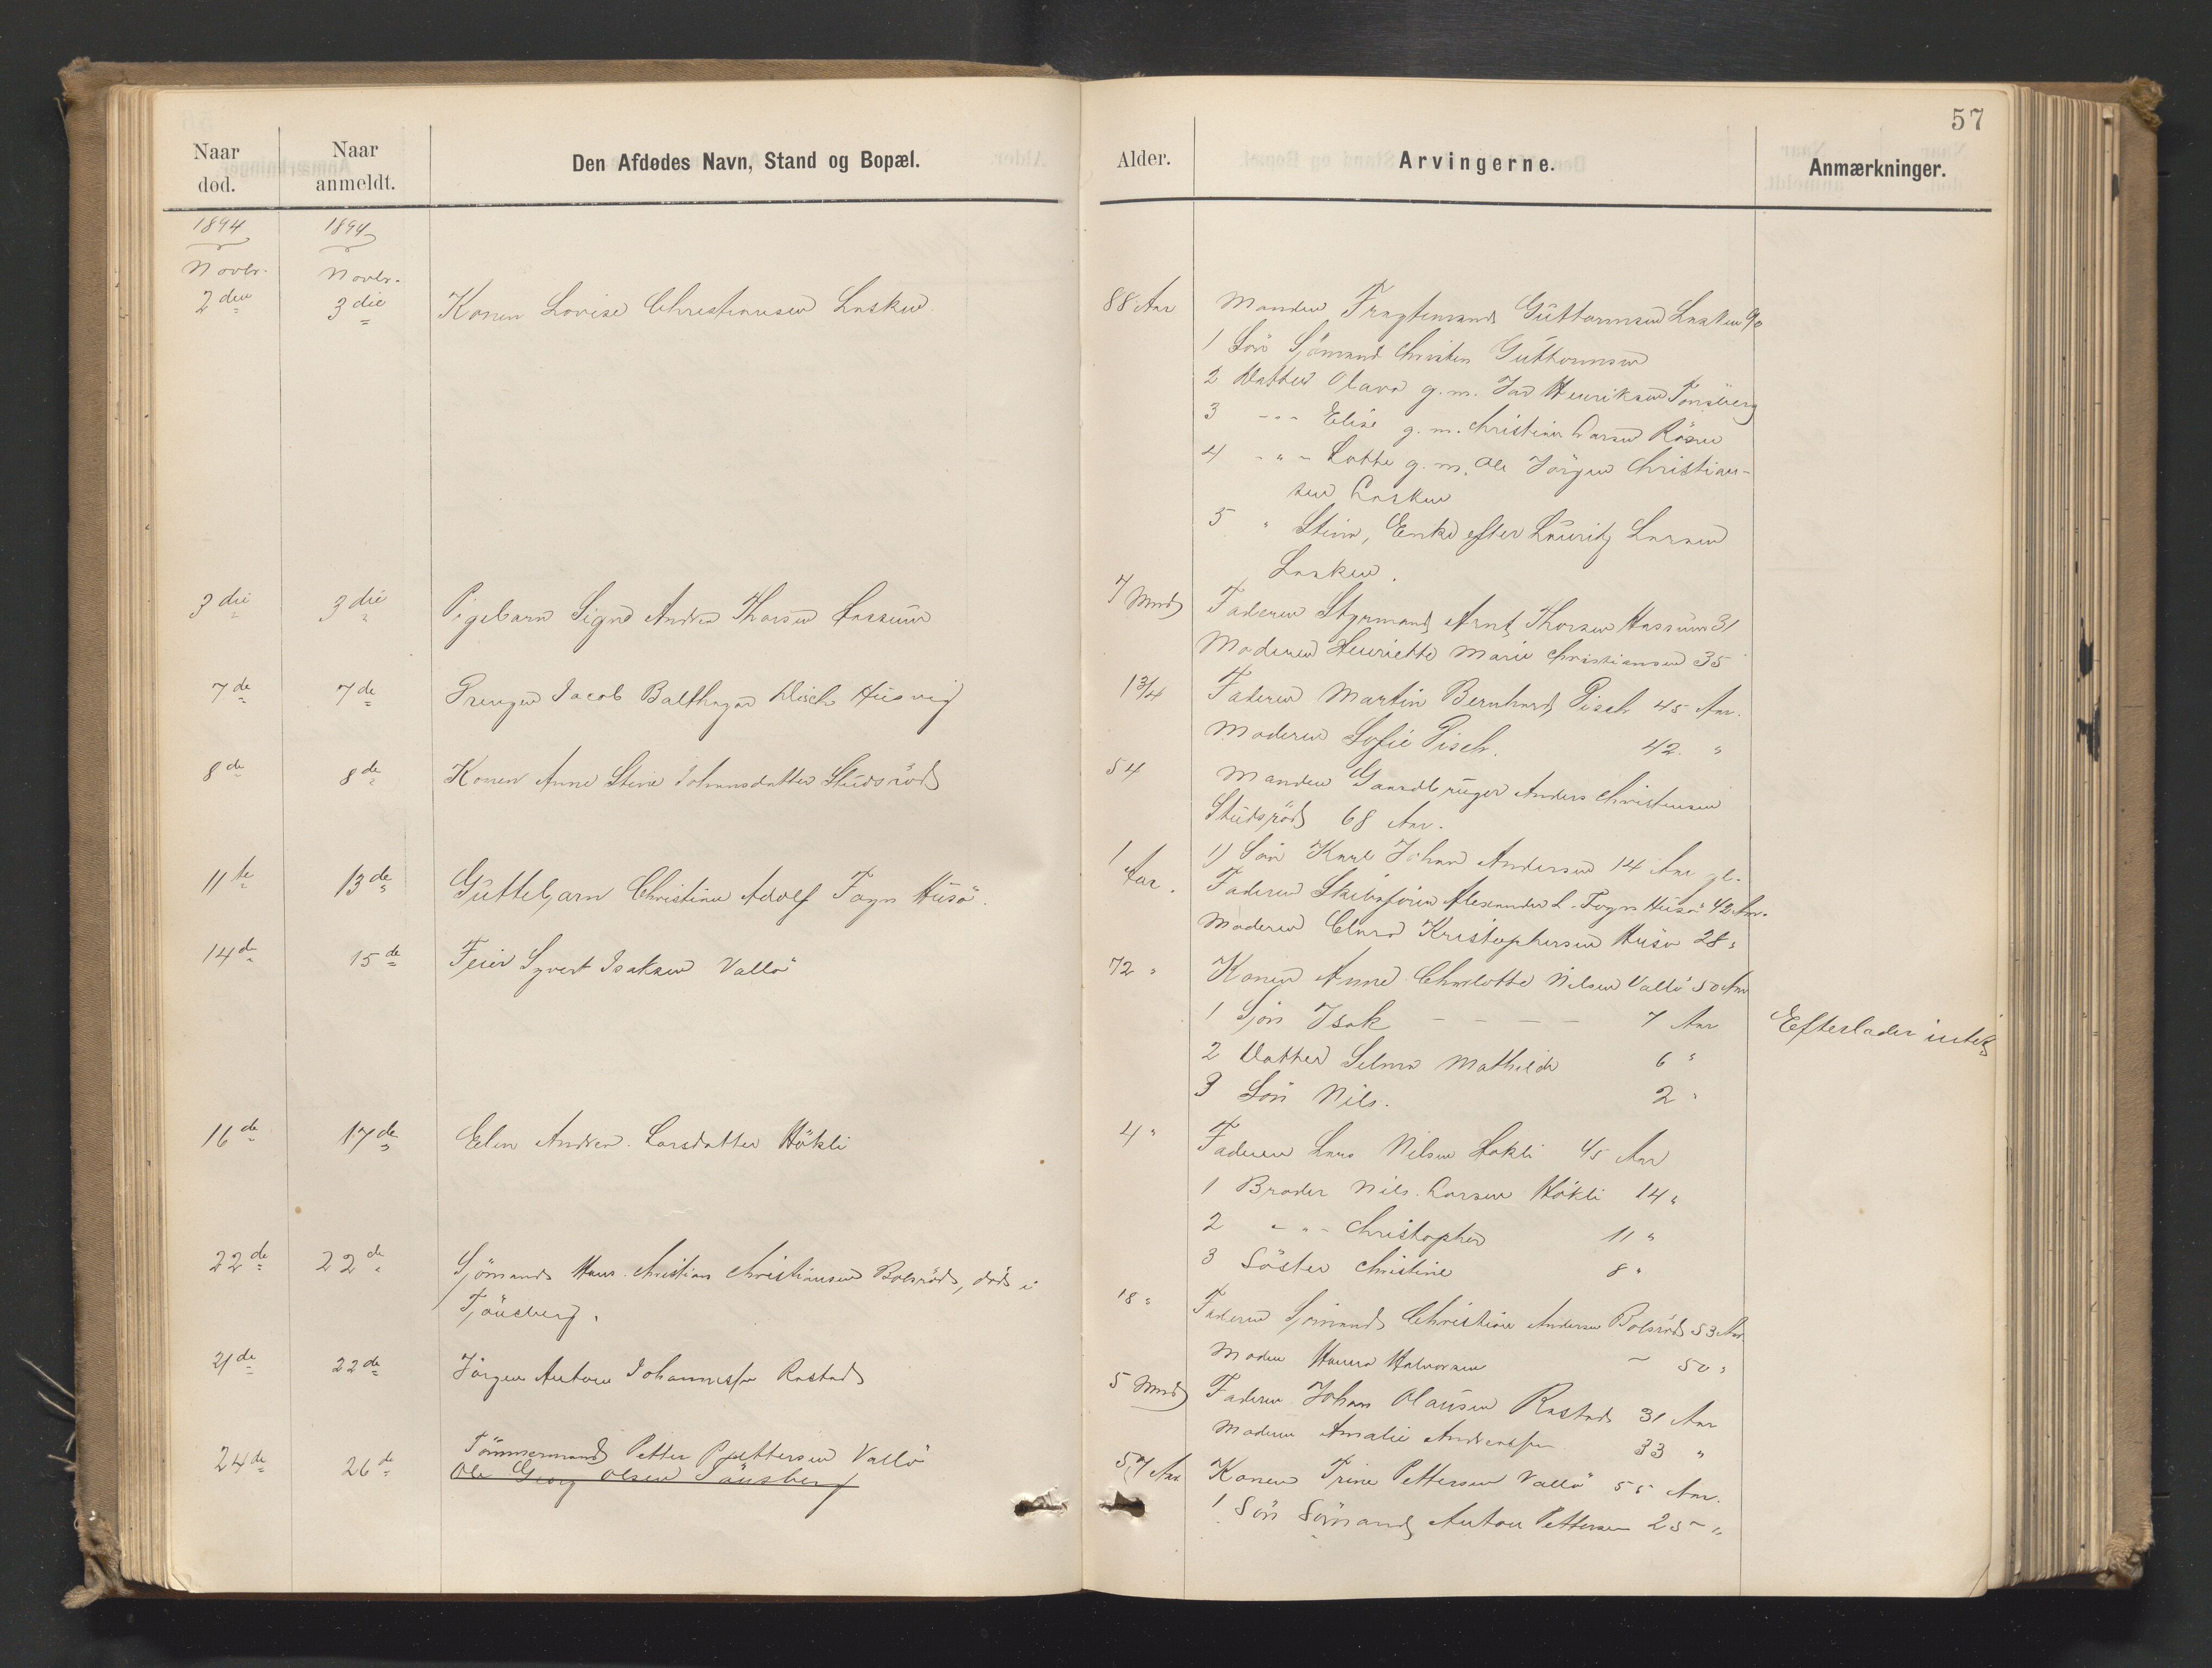 57
Naar død.
Naar anmeldt.
Den Afdødes Navn, Stand og Bopæl.
Alder.
Arvingerne.
Anmærkninger.
1894 1894
Novbr. Novbr.
2den 3die Konen Lovise Christiansen Lasken
88 Aar Manden Fragtemand Guttormsen Lasken 90
1 Søn Sjömand Christen Guttormsen
2 Datter Olava g. m. Henriksen Tönsberg
3 -"- Elise g. m. Christian Larsen
4 -"- Lotte g. m. Ole Jörgen Christian-
sen Lasken
5 " Stina, Enke efter Lauritz Larsen
Lasken.
3die 3die Pigebarn Signe Andrea Thorsen
7 Mnd Faderen Styrmand Arnt Thorsen 31
Moderen Henriette Marie Christiansen 35
7de 7de Drengen Jacob Balthazar Husvig
1 3/4 Faderen Martin Bernhard Pisch 45 Aar.
Moderen Sofie Pisch. 42 "
8de 8de Konen Anne Stine Johannsdatter Studsröd
54 Manden Gaardbruger Anders Christensen
Studsröd 68 Aar.
1) Sön Karl Johan Andersen 14 Aar gl.
11te 13de Guttebarn Christian Adolf Fogn Husö.
1 Aar. Faderen Skibsförer Alexander L. Fogn Husö 42 Aar.
Moderen Clara Kristophersen Husö 28 "
14de 15de Feier Syvert Isaksen Vallö
72 " Konen Anne Charlotte Nilsen Vallö 50 Aar
1 Sön Isak - - - - 7 Aar Efterlader intet
2 Datter Selma Mathilde 6 "
3 Sön Nils. 2 "
16de 17de Elen Andrea Larsdatter Hökli
4 " Faderen Lars Nilsen Hökli 45 Aar
1 Broder Nils Larsen Hökli 14 "
2 -"- Christopher 11 "
3 Söster Christine 8 "
22de 22de Sjömand Hans Christian Christiansen Bolsröd, död i
Tjönsberg.
18 " Faderen Sjömand Christian Andersen Bolsröd 53 Aar
Moder Hanna Halvorsen - 50 "
21de 22de Jörgen Anton Johannessen Rastad
5 Mnd Faderen Johan Olausen Rastad 31 Aar
Moderen Amalie Andreassen 33 "
24de 26de Tömmermand Petter Pettersen Vallö
Ole Georg Olsen Tönsberg
57 Aar Konen Trine Pettersen Vallö 55 Aar.
1 Sön Sömand Anton Pettersen 25 "